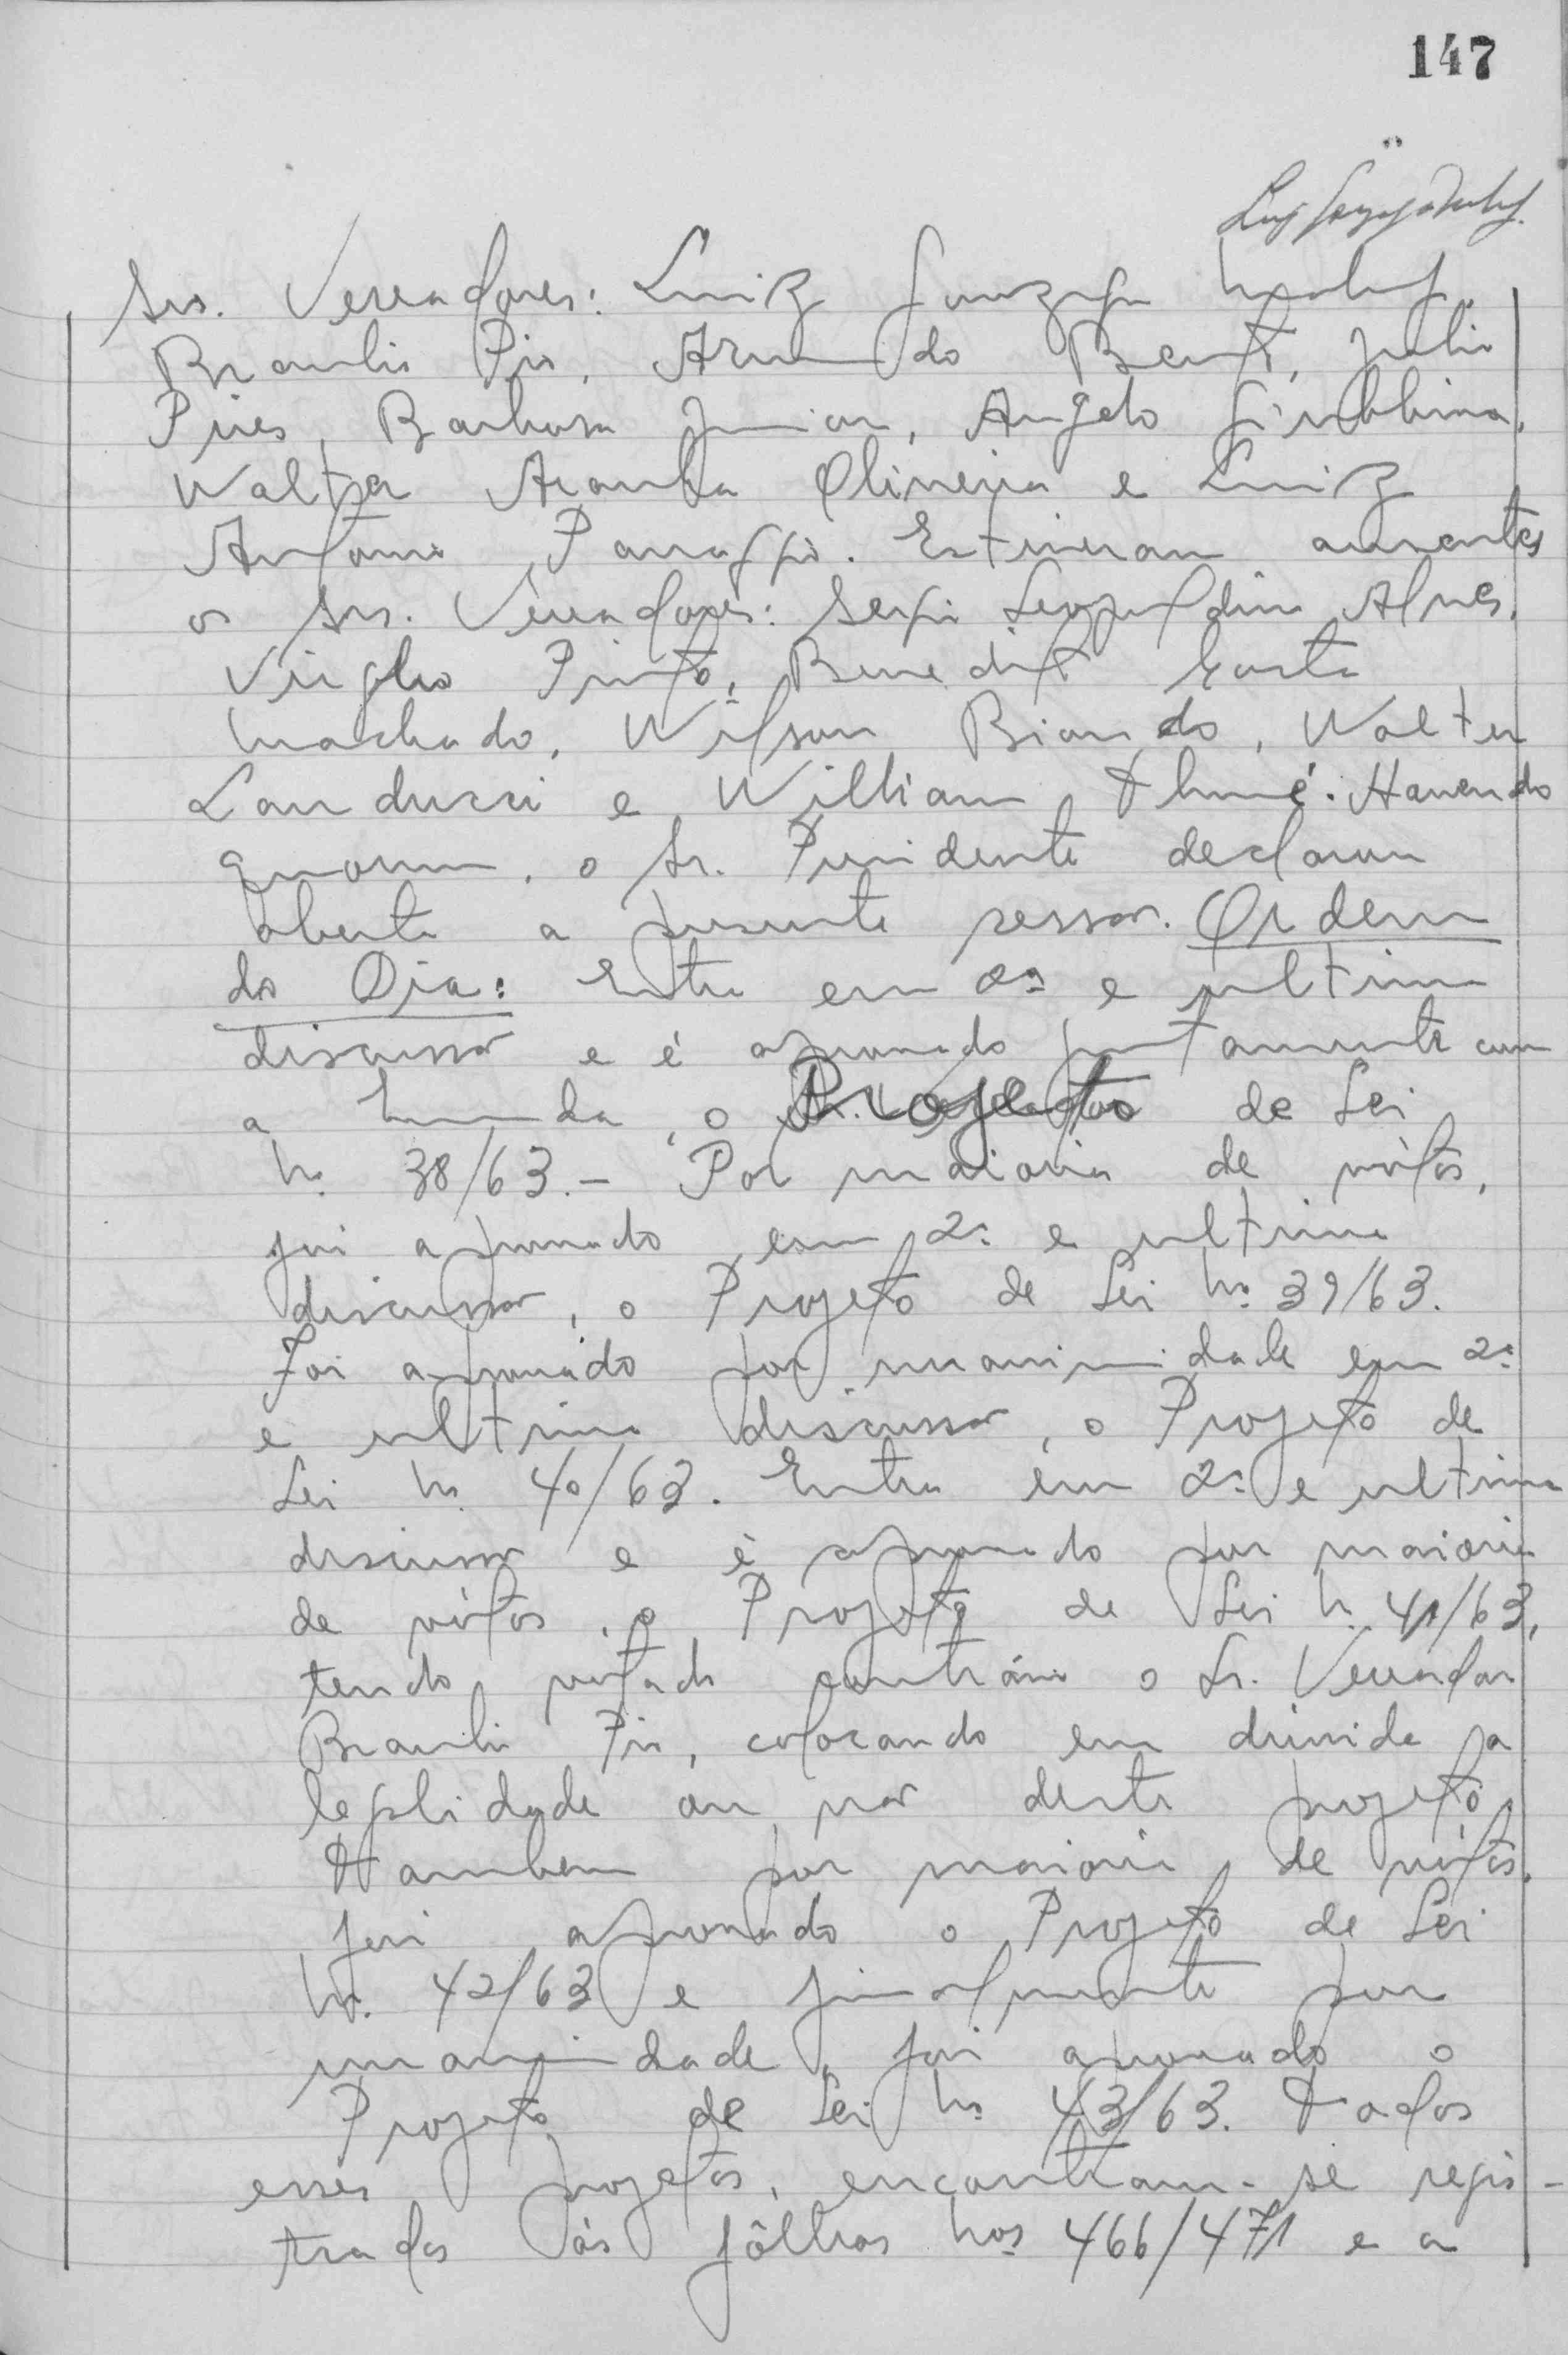 147
Srs. Vereadores: Luiz Gonzaga Maluf,
Braulio Pio, Armando Bento, Julio
Pires, Barbosa Junior, Angelo
Walter Aranha Oliveira e Luiz
Antonio Panaggio. Estiveram ausentes
os Srs. Vereadores: Sergio Leopoldino Alves,
Virgilio Pinto, Benedito Costa
Machado, Wilson Biondo, Walter
Landucci e William Thomé. Havendo
quorum, o Sr. Presidente declarou
aberta a presente sessão. Ordem
do Dia: Entra em 2ª e ultima
discussão e é aprovado juntamente com
a Emenda, o Projeto de Lei
nº 38/63. - Por maioria de vótos,
foi aprovado em 2ª e ultima
discussão, o Projeto de Lei nº 39/63.
Foi aprovado por unanimidade em 2ª
e ultima discussão, o Projeto de
Lei nº 40/63. Entra em 2ª e ultima
discussão e é aprovado por maioria
de vótos, o Projeto de Lei nº 41/63,
tendo votado contrário o Sr. Vereador
Braulio Pio, colocando em duvida a
legalidade ou não deste projeto.
Tambem por maioria de vótos,
foi aprovado o Projeto de Lei
nº 42/63 e finalmente por
unanimidade, foi aprovado o
Projeto de Lei nº 43/63. Todos
esses projetos, encontram-se regis-
trados às fôlhas nos 466/471 e a